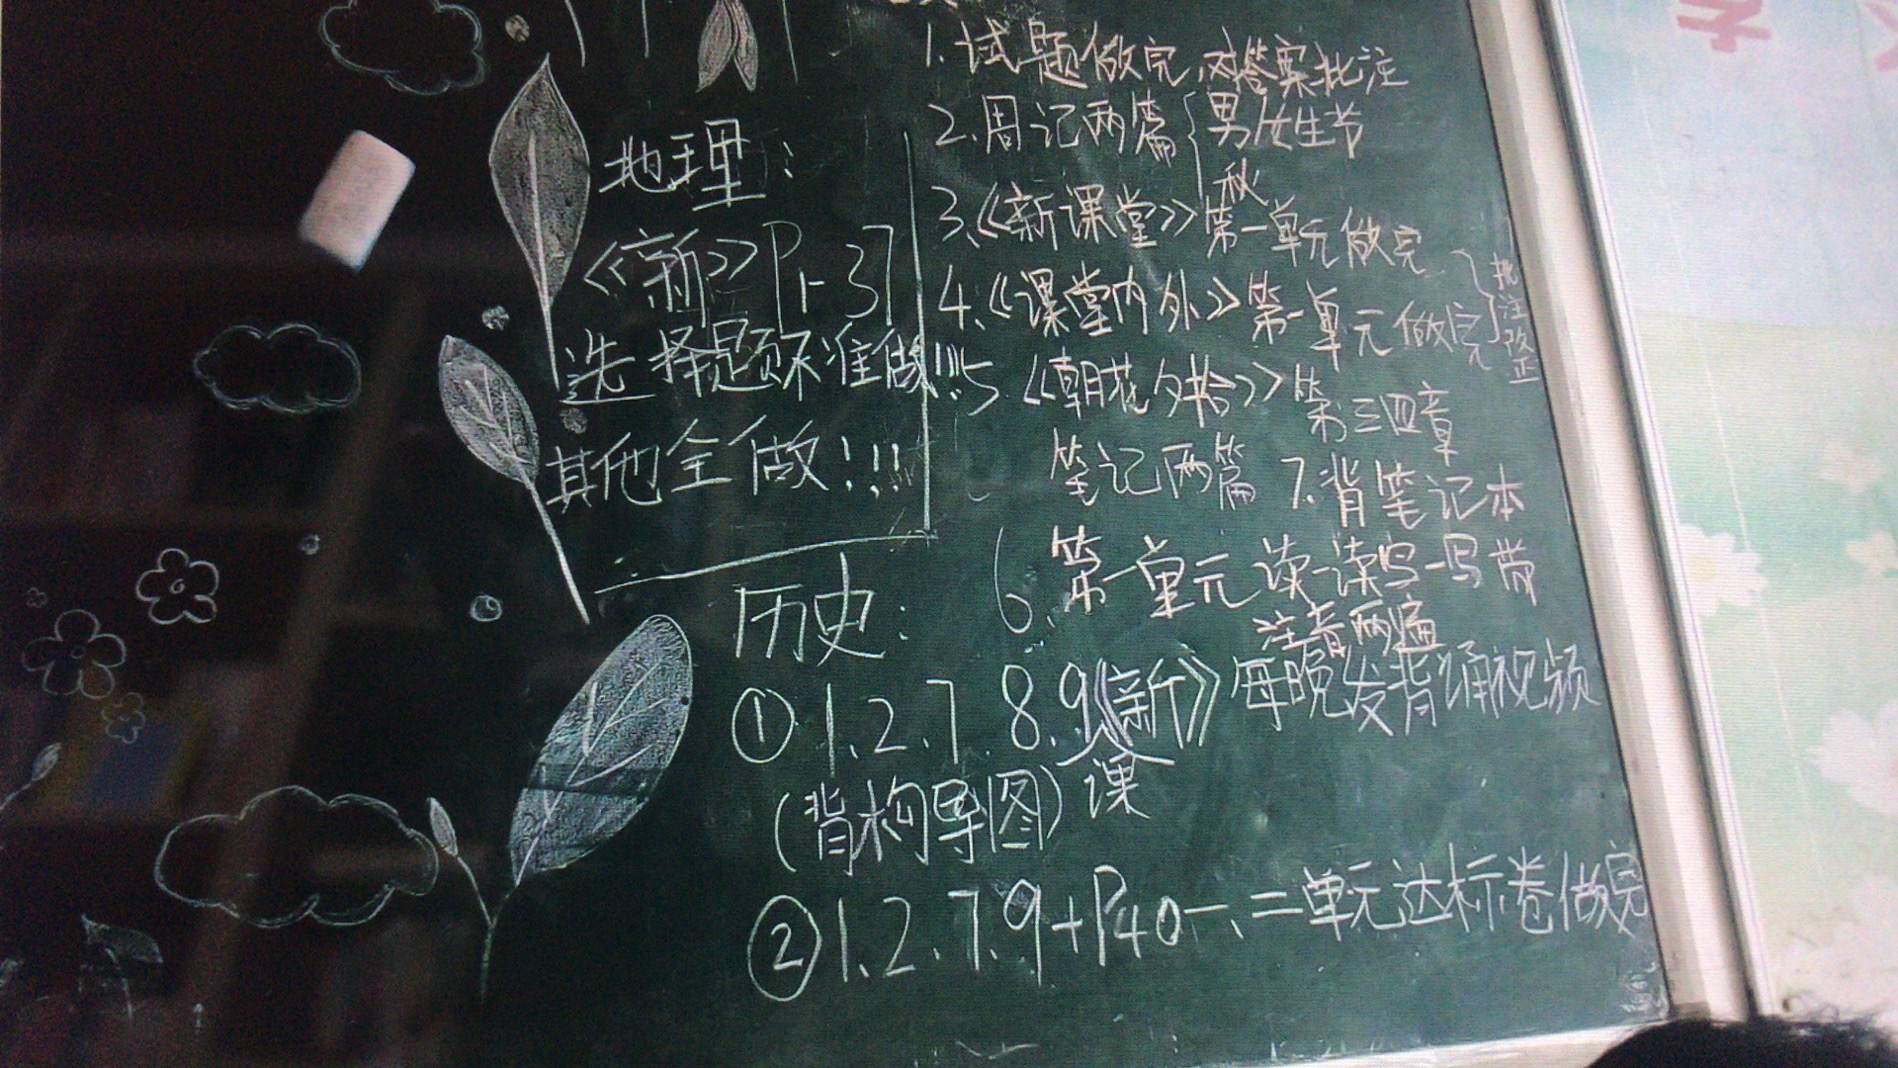 地理：
《新》P1-37
选择题不准做!!!
其他全做!!!
1.试题做完,对答案批注
2.周记两篇{男女生节
秋
3.《新课堂》第一单元做完
4.《课堂内外》第一单元做完
}批注改正
5《朝花夕拾》第三四章
笔记两篇 7.背笔记本
6.第一单元读一读写一写带
注音两遍
历史：
①1.2.7.8.9《新》 每晚发背诵视频
课
(背构导图)
②1.2.7.9+P40一、二单元达标卷做完